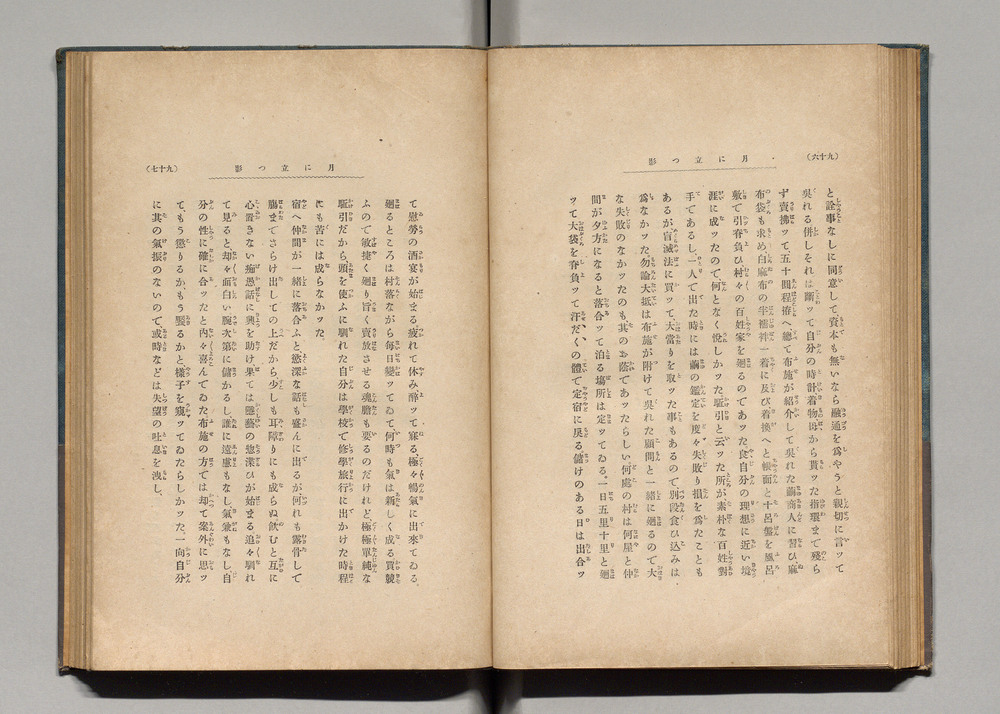 (九十六)
月に立つ影
と詮事なしに同意して資本も無いなら融通を爲やうと親切に言ッて
呉れる併しそれは謝ッて自分の時計着物母から貰ッた指環まで殘ら
ず賣拂ッて、五十圓程拵へ總て布施が紹介して呉れた繭商人に習ひ麻
布袋も求め白麻布の半襦袢一着に及び着換へと帳面と十呂盤を風呂
敷で引脊負ひ村々の百姓家を廻るのであッた良自分の理想に近い境
涯に成ッたので、何となく悅しかッた駈引と云ッた所が素朴な百姓對
手であるし、一人で出た時には繭の鑑定を度々失敗り損を爲たことも
あるが盲滅法に買ッて、大當りを取ッた事もあるので、別段食ひ込みは
爲なかッた、勿論大抵は布施が附けて呉れた顧問と一緒に廻るので大
な失敗のなかッたのも其のお蔭であッたらしい何處の村は何屋と仲
間が夕方になると落合ッて泊る塲所は定ッてゐる。一日五里十里と廻
ッて大袋を脊負ッて汗だくの體で定宿に戻る儲けのある日は出合ッ
月に立つ影
(九十七)
て慰勞の酒宴が始まる疲れて休み醉ッて寐る、極々暢氣に出來てゐる、
廻るところは村落ながら毎日變ッてゐて、何時も氣は新しく成る買競
ふので敏捷く廻り旨く賣放させる魂膽も要るのだけれど、極極單純な
駈引だから、頭を使ふに馴れた自分は學校で修學旅行に出かけた時程
にも苦には成らなかッた、
宿へ仲間が一緒に落合ふと、慾深な話も盛んに出るが何れも露骨して、
膓までさらけ出しての上だから少しも耳障りにも成らぬ飮むと互に
心置きない痴愚話に興を助け果ては隱藝の惣浚ひが始まる追々馴れ
て見ると、却々面白い腕次第に儲かるし、誰に遠慮もなし氣兼もなし、自
分の性に確に合ッたと内々喜んでゐた布施の方では却て案外に思ッ
て、もう懲りるか、もう懲るかと、樣子を窺ッてゐたらしかッた、一向自分
に其の氣振のないので、或時などは失望の吐息を洩し、